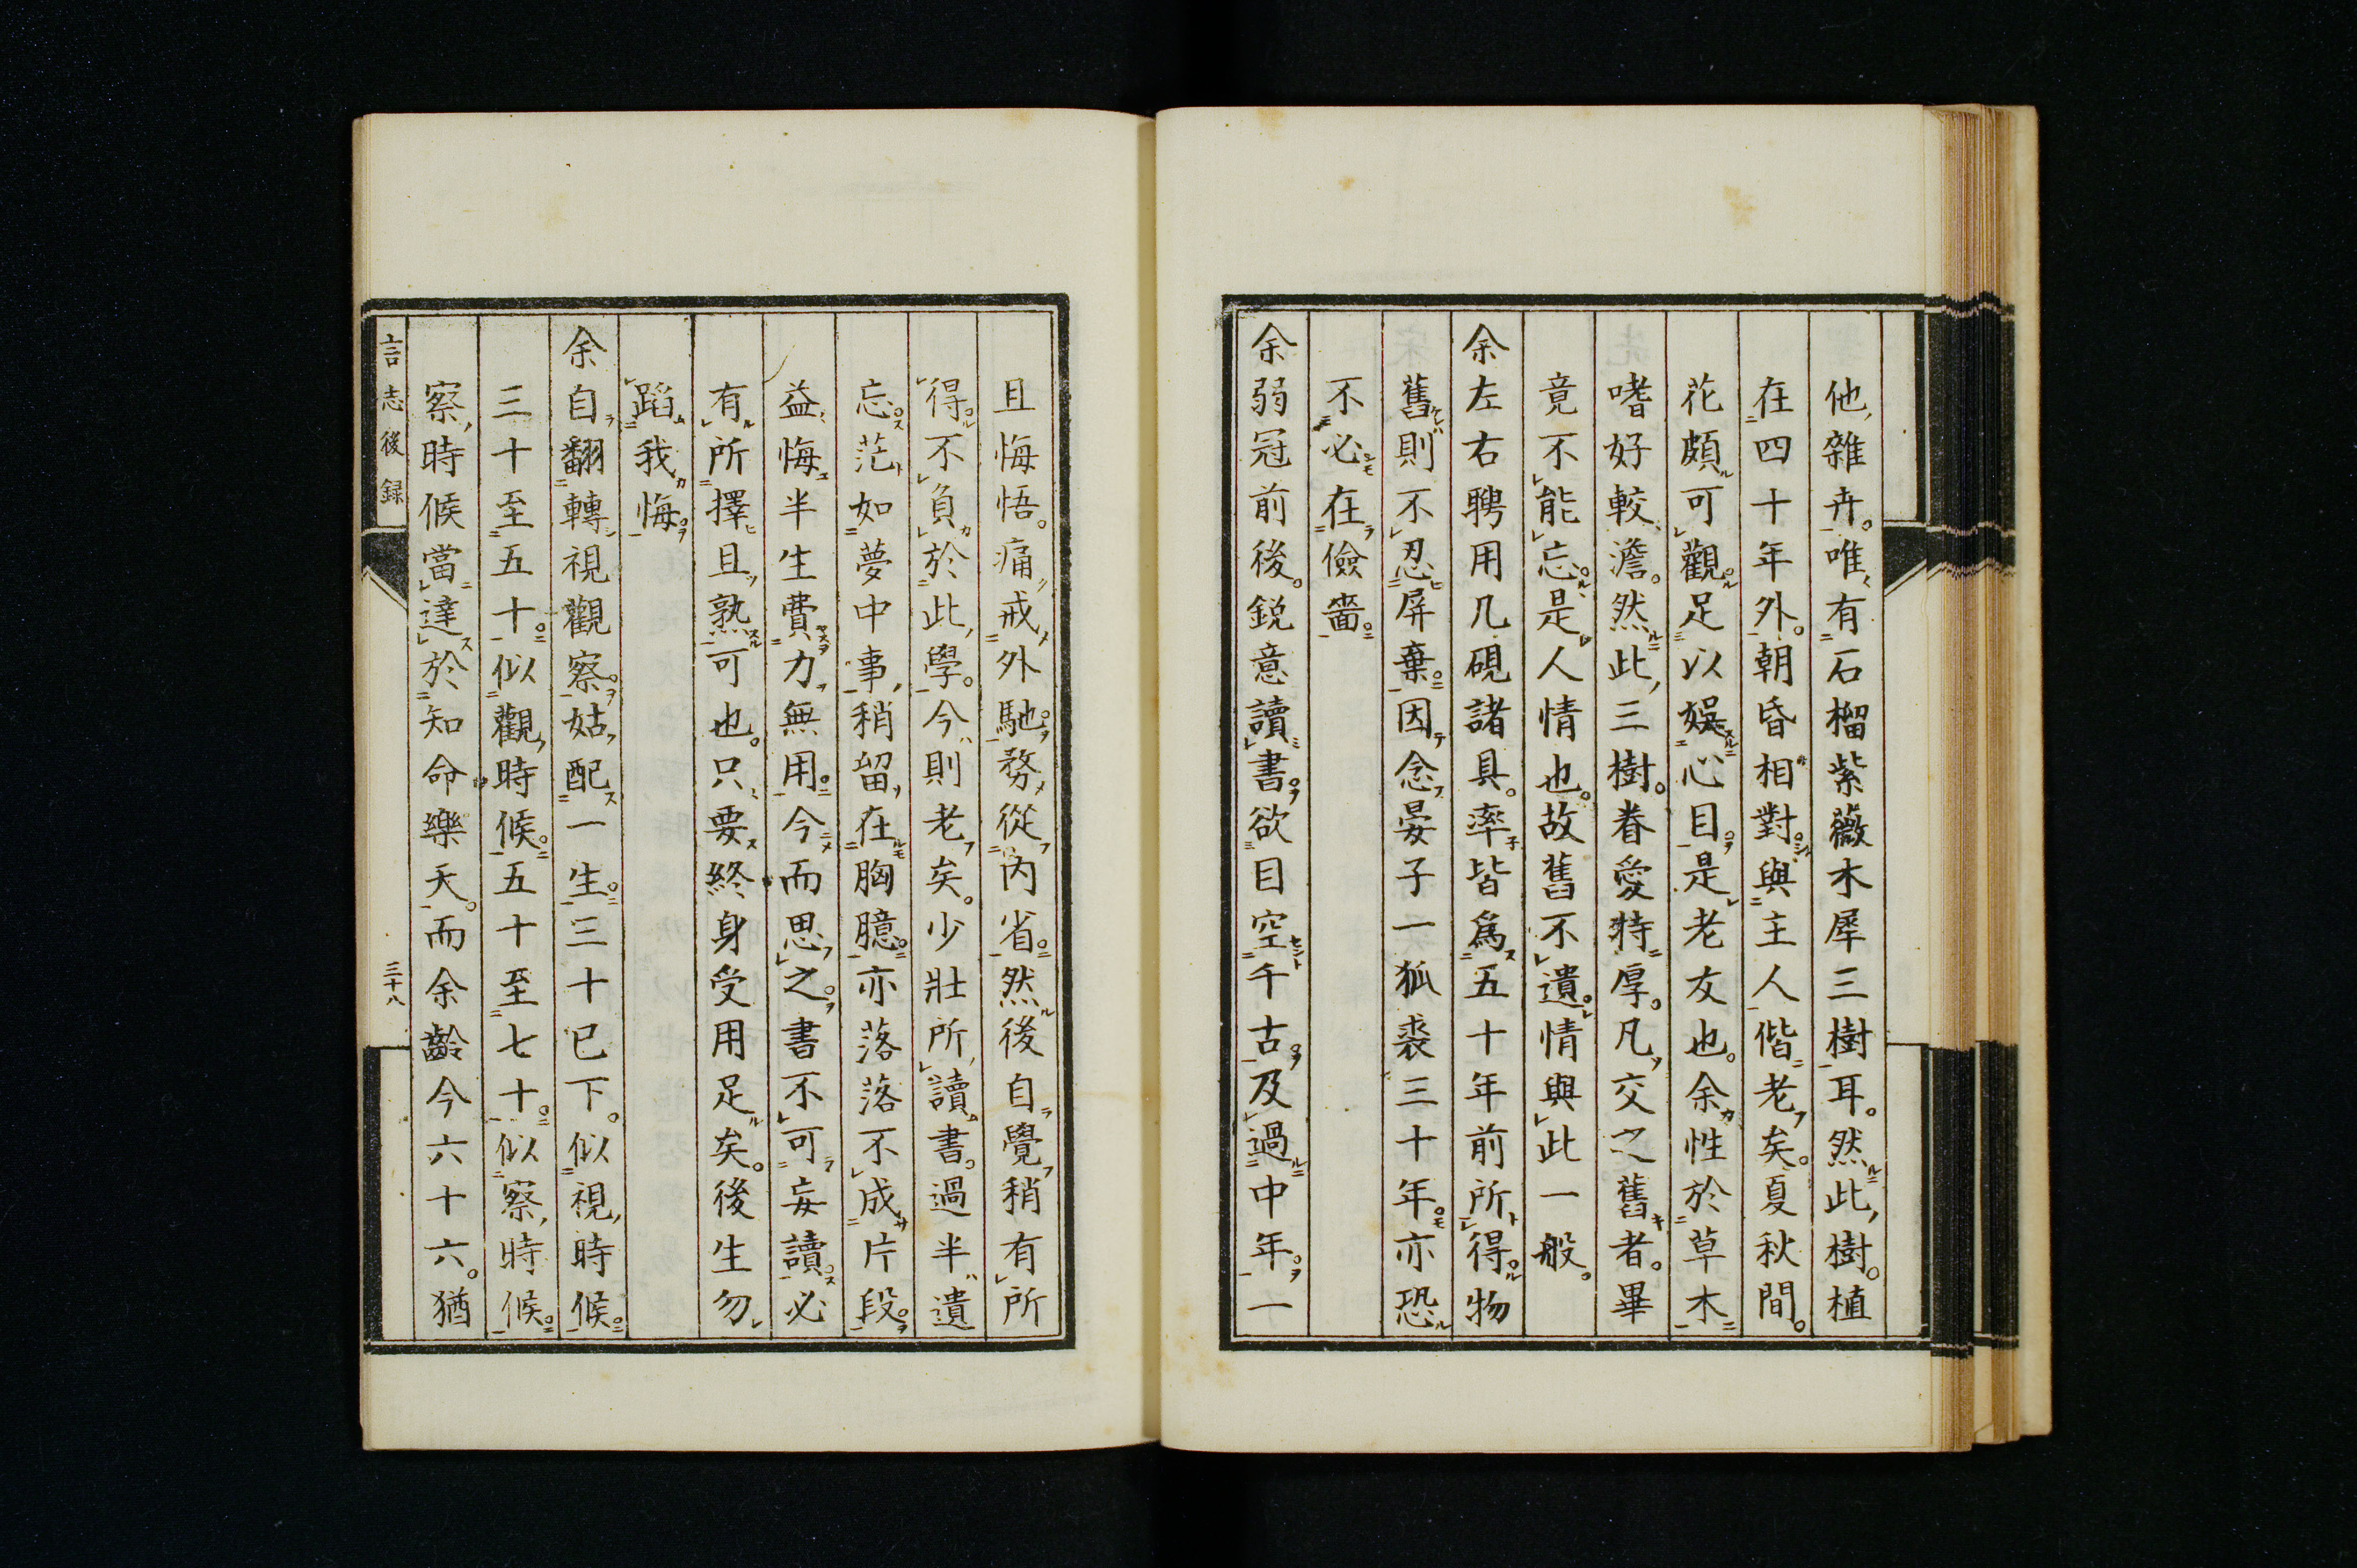 他雜卉。唯有石榴紫薇木犀三樹耳。然此樹。植
在四十年外。朝昏相對。與主人偕老矣。夏秋間。
花頗可觀。足以娛心目。是老友也。余性於草木
嗜好較澹。然此三樹。眷愛特厚。凡交之舊者。畢
竟不能忘。是人情也。故舊不遺。情與此一般。
余左右聘用几硯諸具。率皆爲五十年前所得。物
舊則不忍屏棄。因念晏子一狐裘三十年。亦恐
不必在儉嗇。
余弱冠前後。鋭意讀書。欲目空千古。及過中年。一
且悔悟。痛戒外馳。務從內省。然後自覺稍有所
得。不負於此學。今則老矣。少壯所讀書。過半遺
忘。茫如夢中事。稍留在胸臆。亦落落不成片段。
益悔半生費力無用。今而思之。書不可妄讀。必
有所擇且熟可也。只要終身受用足矣。後生勿
蹈我悔。
余自翻轉視觀察。姑配一生。三十已下。似視時候。
三十至五十。似觀時候。五十至七十。似察時候。
察時候當達於知命樂天。而余齡今六十六。猶
言志後録
三十八